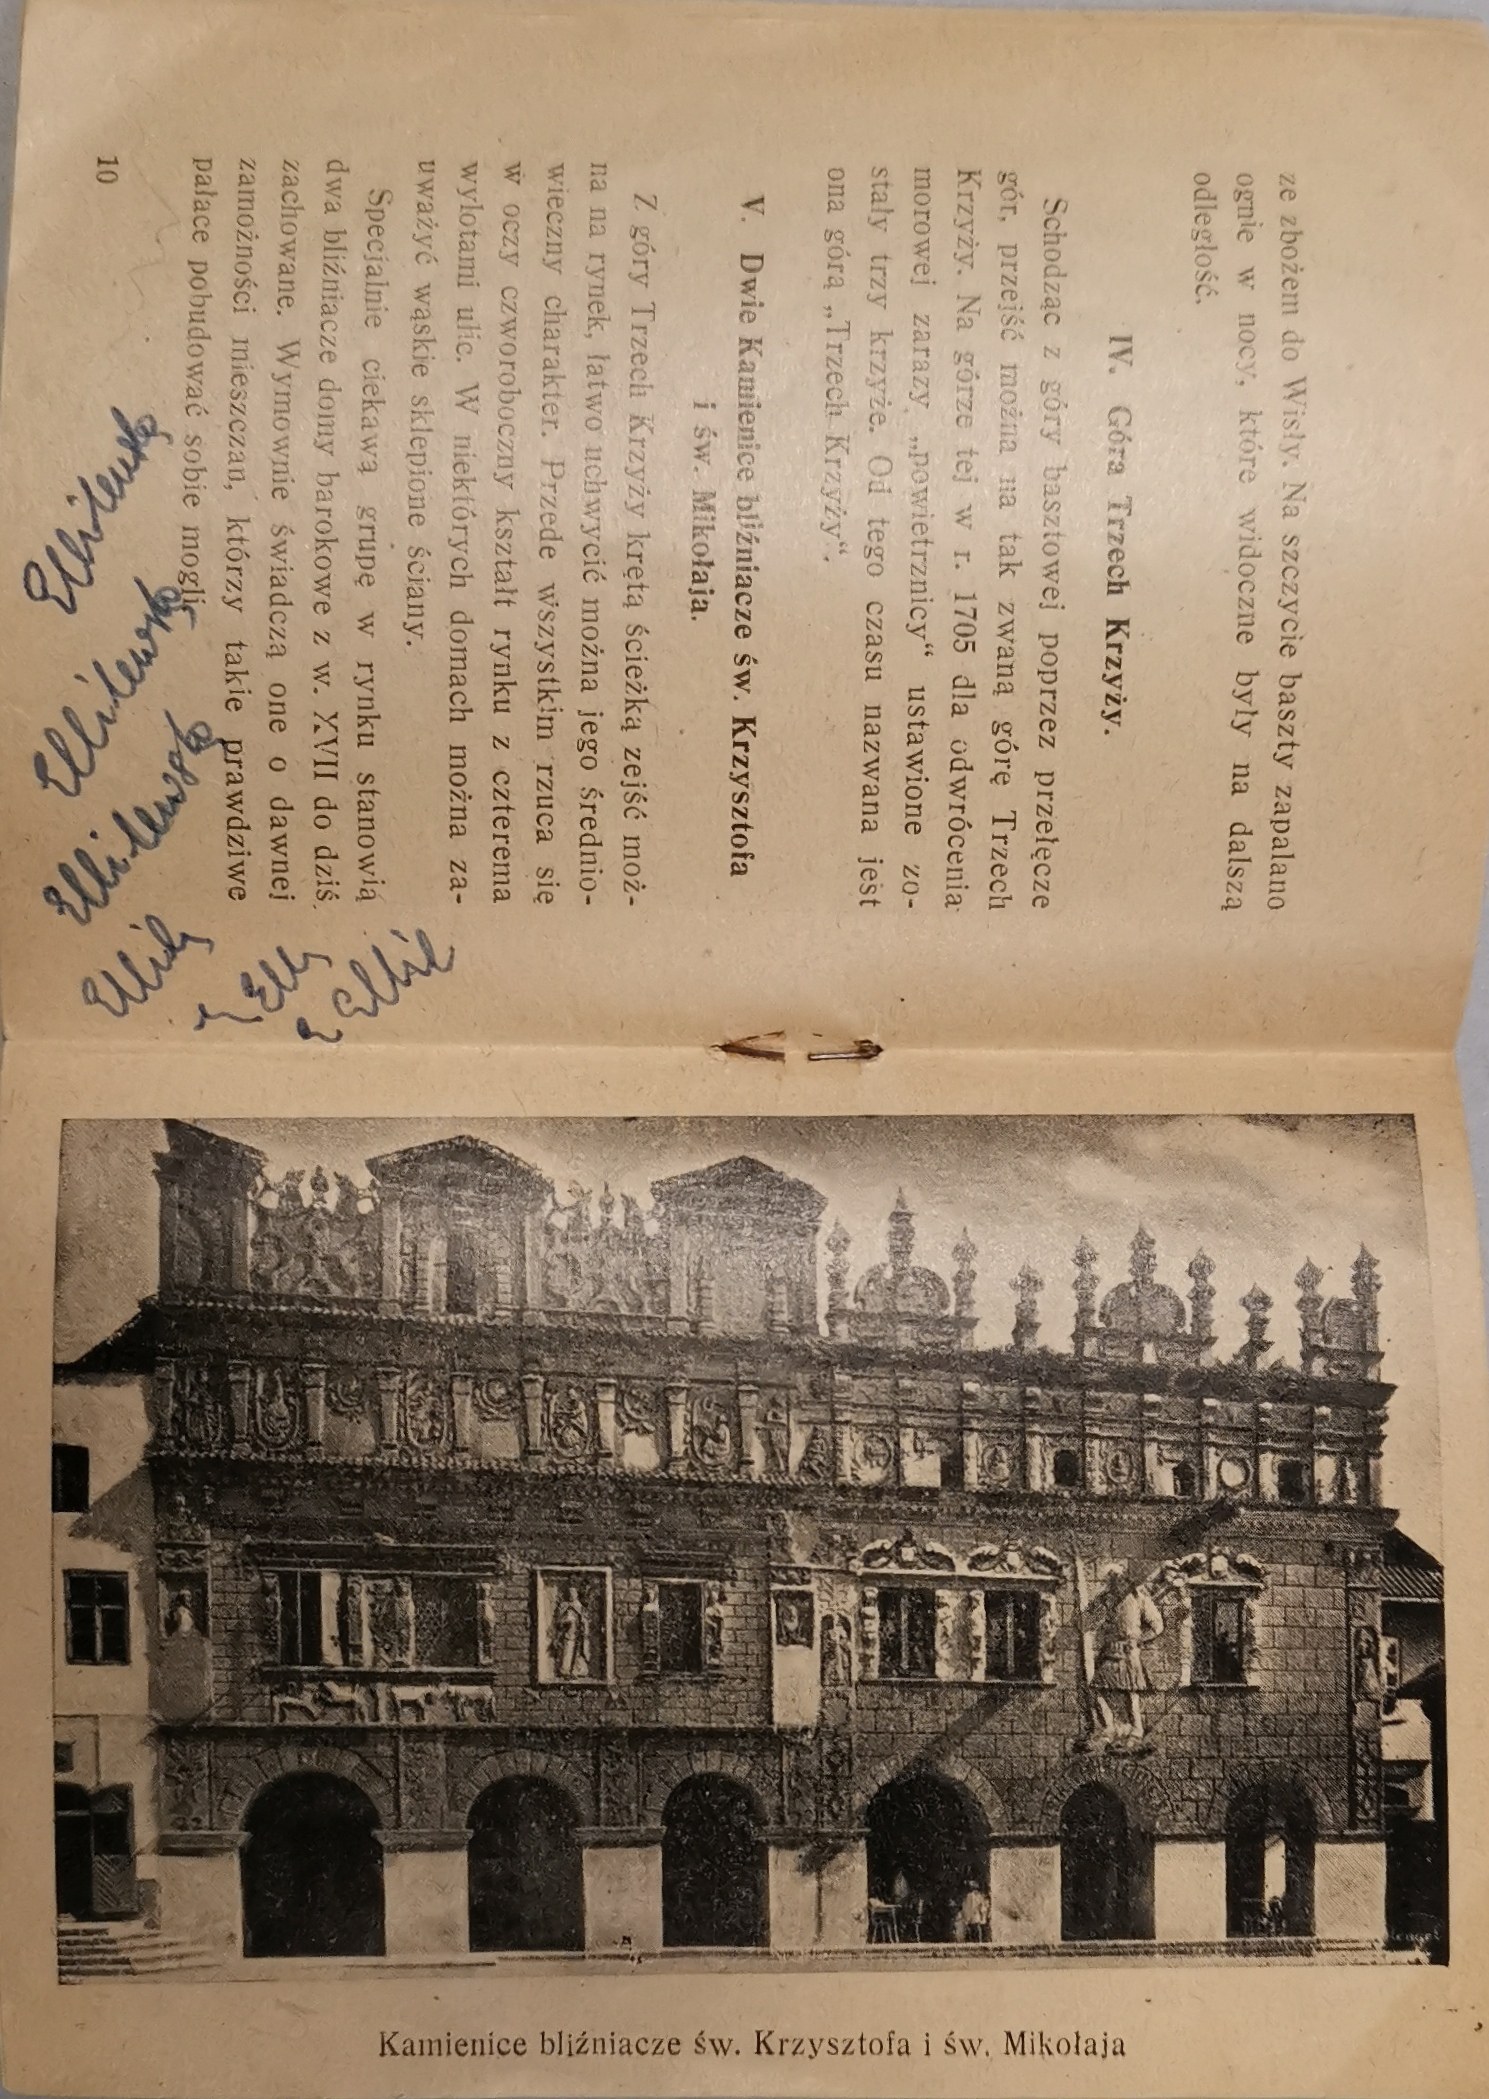 ze zbożem do Wisły. Na szczycie baszty zapalano
ognie w nocy, które widoczne były na dalszą
odległość.
IV. Góra Trzech Krzyży.
Schodząc z góry basztowej poprzez przełęcze
gór, przejść można na tak zwaną górę Trzech
Krzyży. Na górze tej w r. 1705 dla odwrócenia
morowej zarazy „powietrznicy“ ustawione zo-
stały trzy krzyże. Od tego czasu nazwana jest
ona górą „Trzech Krzyży“.
V. Dwie Kamienice bliźniacze św. Krzysztofa
i św. Mikołaja.
Z góry Trzech Krzyży krętą ścieżką zejść moż-
na na rynek, łatwo uchwycić można jego średnio-
wieczny charakter. Przede wszystkim rzuca się
w oczy czworoboczny kształt rynku z czterema
wylotami ulic. W niektórych domach można za-
uważyć wąskie sklepione ściany.
Specjalnie ciekawą grupę w rynku stanowią
dwa bliźniacze domy barokowe z w. XVII do dziś
zachowane. Wymownie świadczą one o dawnej
zamożności mieszczan, którzy takie prawdziwe
pałace pobudować sobie mogli.
10
Kamienice bliźniacze św. Krzysztofa i św. Mikołaja